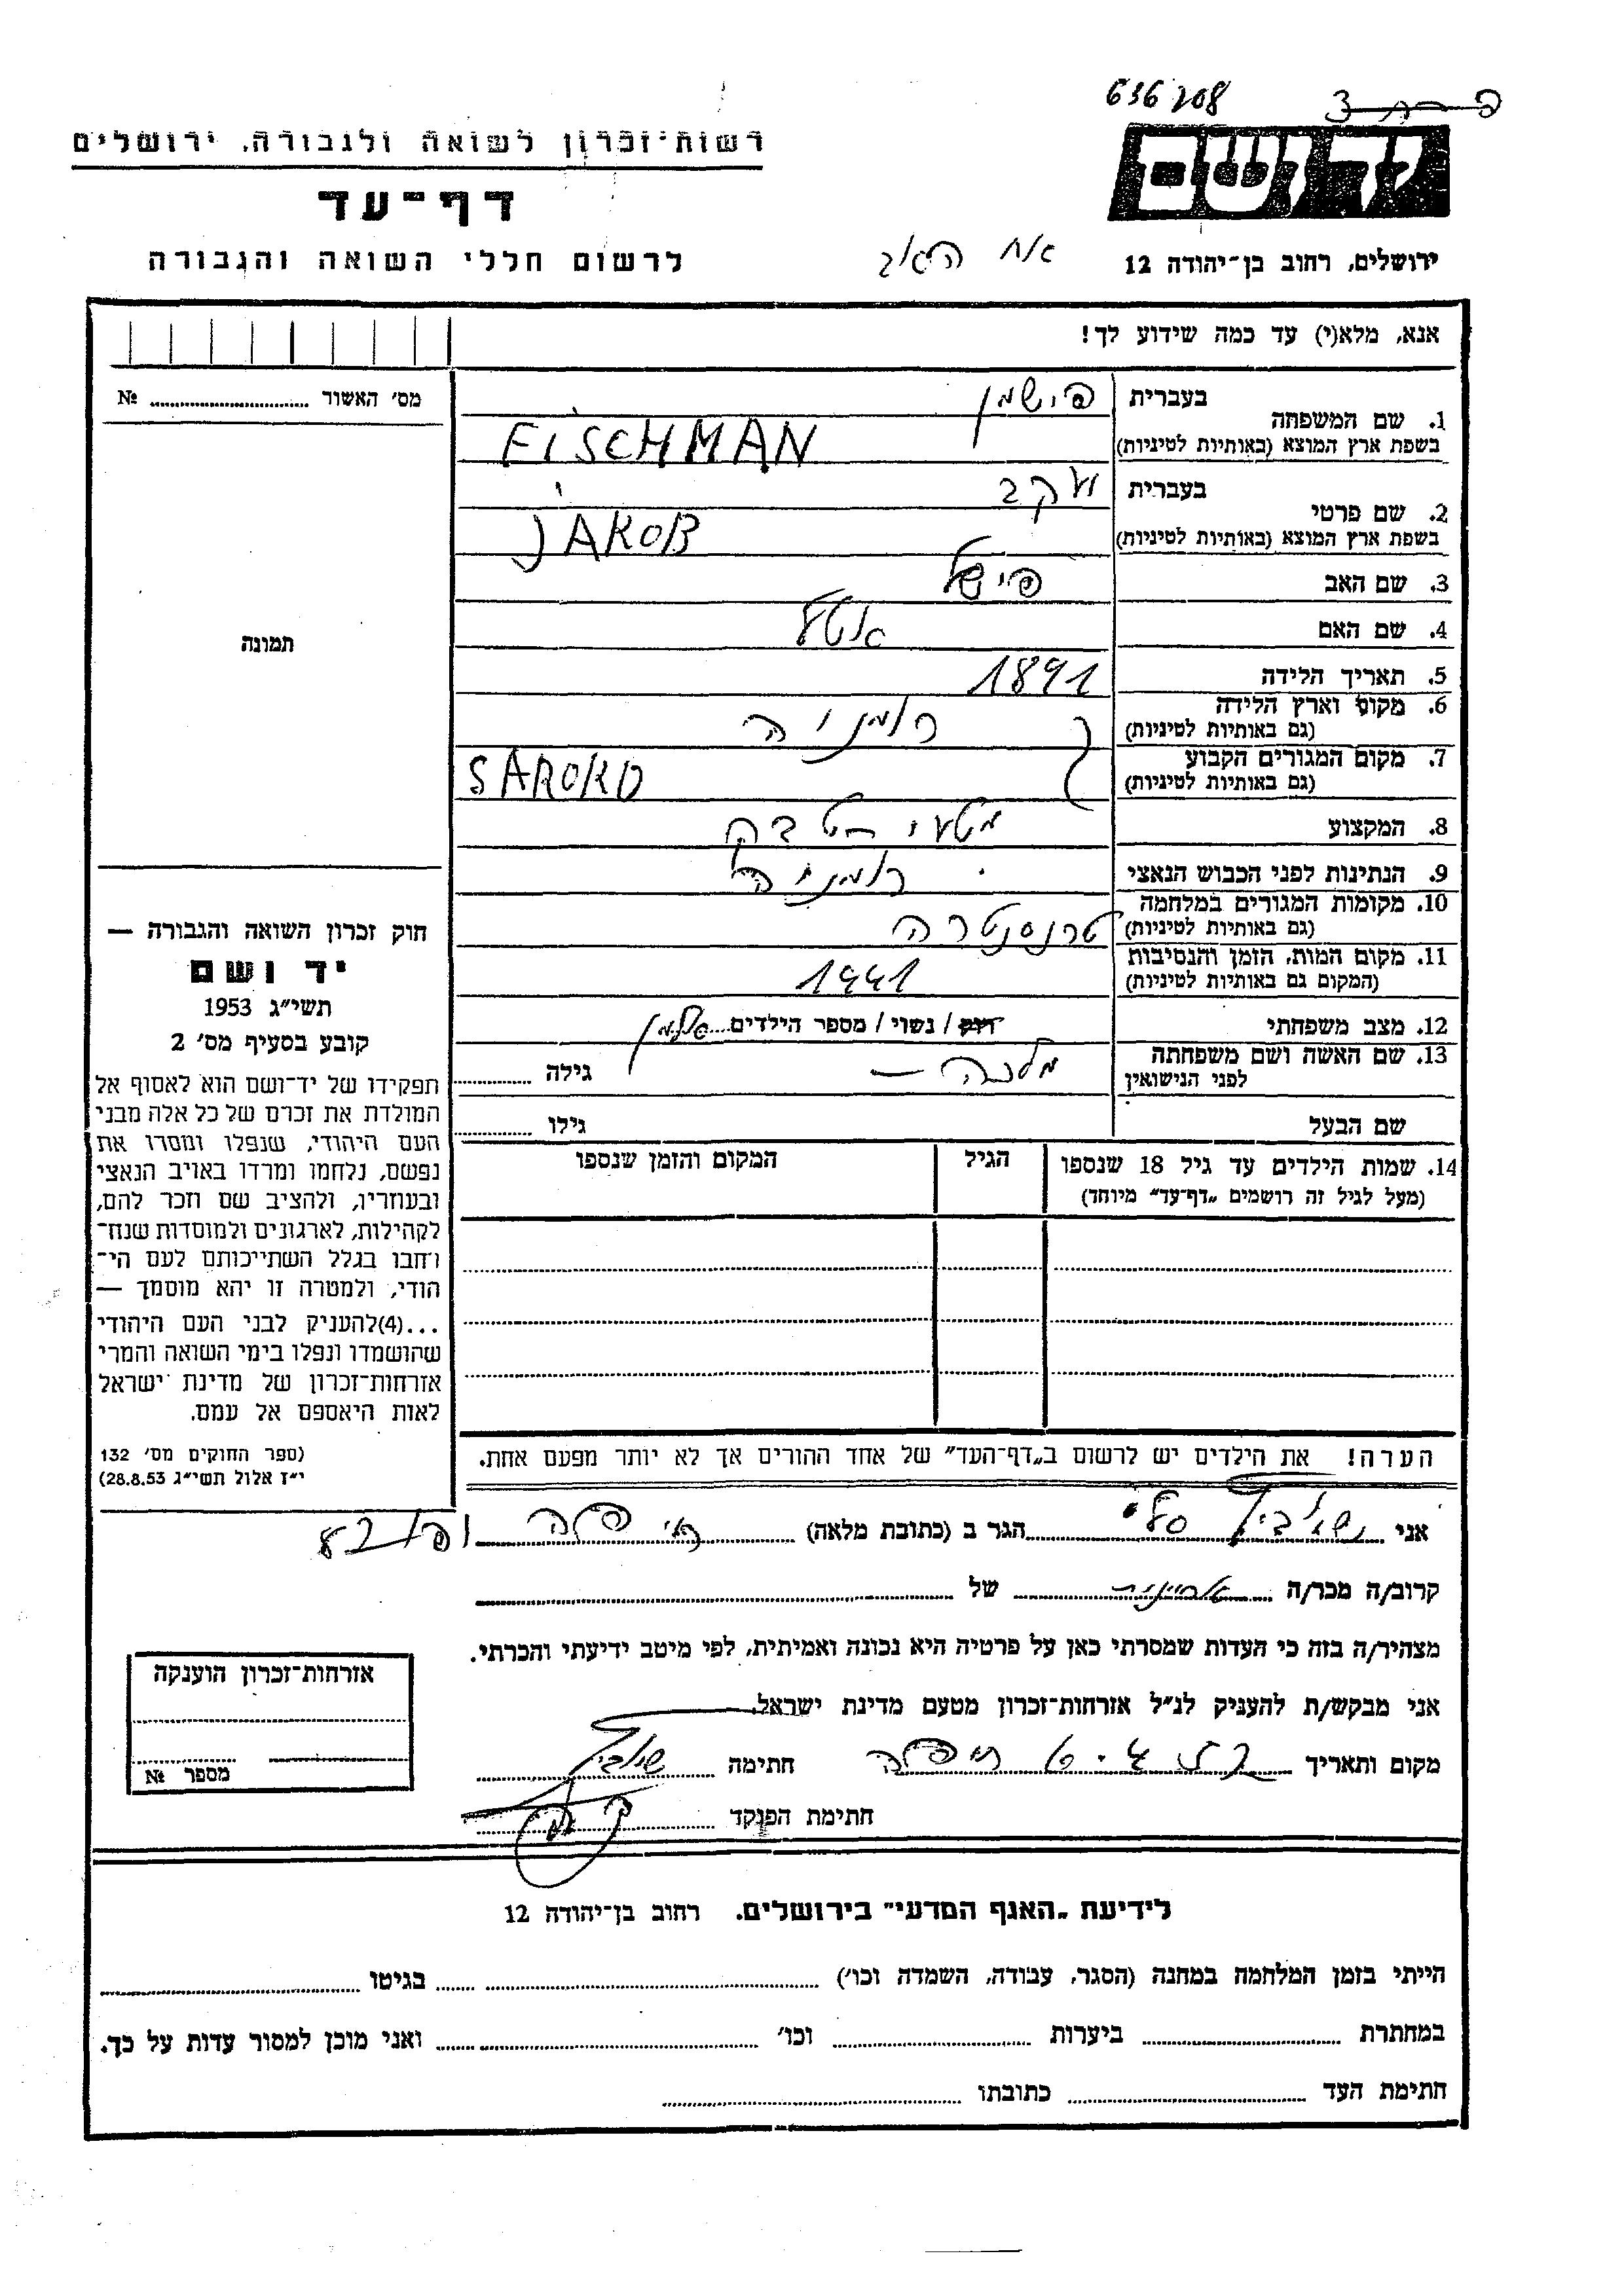 636208
רשות-זכרון לשואה ולגבורה, ירושלים
יד ושם
דף-עד
לרשום חללי השואה והגבורה
אח האב
ירושלים, רחוב בן-יהודה 12
אנא, מלא(י) עד כמה שידוע לך!
מס׳ האשור № 
1. שם המשפחה בעברית פישמן
בשפת ארץ המוצא (באותיות לטיניות) FISCHMAN
2. שם פרטי בעברית יעקב
בשפת ארץ המוצא (באותיות לטיניות) JAKOB
3. שם האב פישל
4. שם האם
5. תאריך הלידה 1891
6. מקום וארץ הלידה רומניה
(גם באותיות לטיניות)
7. מקום המגורים הקבוע
(גם באותיות לטיניות) SAROKO
8. המקצוע
9. הנתינות לפני הכבוש הנאצי רומניה
10. מקומות המגורים במלחמה
(גם באותיות לטיניות) טרנסטריה
11. מקום המות, הזמן והנסיבות
(המקום גם באותיות לטיניות) 1941
12. מצב משפחתי רווק / נשוי / מספר הילדים
13. שם האשה ושם משפחתה
לפני הנישואין מלכה — גילה
שם הבעל גילו
14. שמות הילדים עד גיל 18 שנספו
(מעל לגיל זה רושמים „דף-עד״ מיוחד)
הגיל
המקום והזמן שנספו
הערה! את הילדים יש לרשום ב„דף-העד״ של אחד ההורים אך לא יותר מפעם אחת.
תמונה
חוק זכרון השואה והגבורה —
יד ושם
תשי״ג 1953
קובע בסעיף מס׳ 2
תפקידו של יד-ושם הוא לאסוף אל
המולדת את זכרם של כל אלה מבני
העם היהודי, שנפלו ומסרו את
נפשם, נלחמו ומרדו באויב הנאצי
ובעוזריו, ולהציב שם וזכר להם,
לקהילות, לארגונים ולמוסדות שנח-
רחבו בגלל השתייכותם לעם הי-
הודי, ולמטרה זו יהא מוסמך —
...(4)להעניק לבני העם היהודי
שהושמדו ונפלו בימי השואה והמרי
אזרחות-זכרון של מדינת ישראל
לאות היאספם אל עמם.
(ספר החוקים מס׳ 132
י״ז אלול תשי״ג 28.8.53)
אני הגר ב (כתובת מלאה)
קרוב/ה מכר/ה אחיינית של
מצהיר/ה בזה כי העדות שמסרתי כאן על פרטיה היא נכונה ואמיתית, לפי מיטב ידיעתי והכרתי.
אני מבקש/ת להעניק לנ״ל אזרחות-זכרון מטעם מדינת ישראל.
מקום ותאריך חיפה חתימה
חתימת הפוקד
אזרחות-זכרון הוענקה
מספר №
לידיעת „האגף המדעי״ בירושלים. רחוב בן-יהודה 12
הייתי בזמן המלחמה במחנה (הסגר, עבודה, השמדה וכו׳) בגיטו
במחתרת ביערות וכו׳ ואני מוכן למסור עדות על כך.
חתימת העד כתובתו